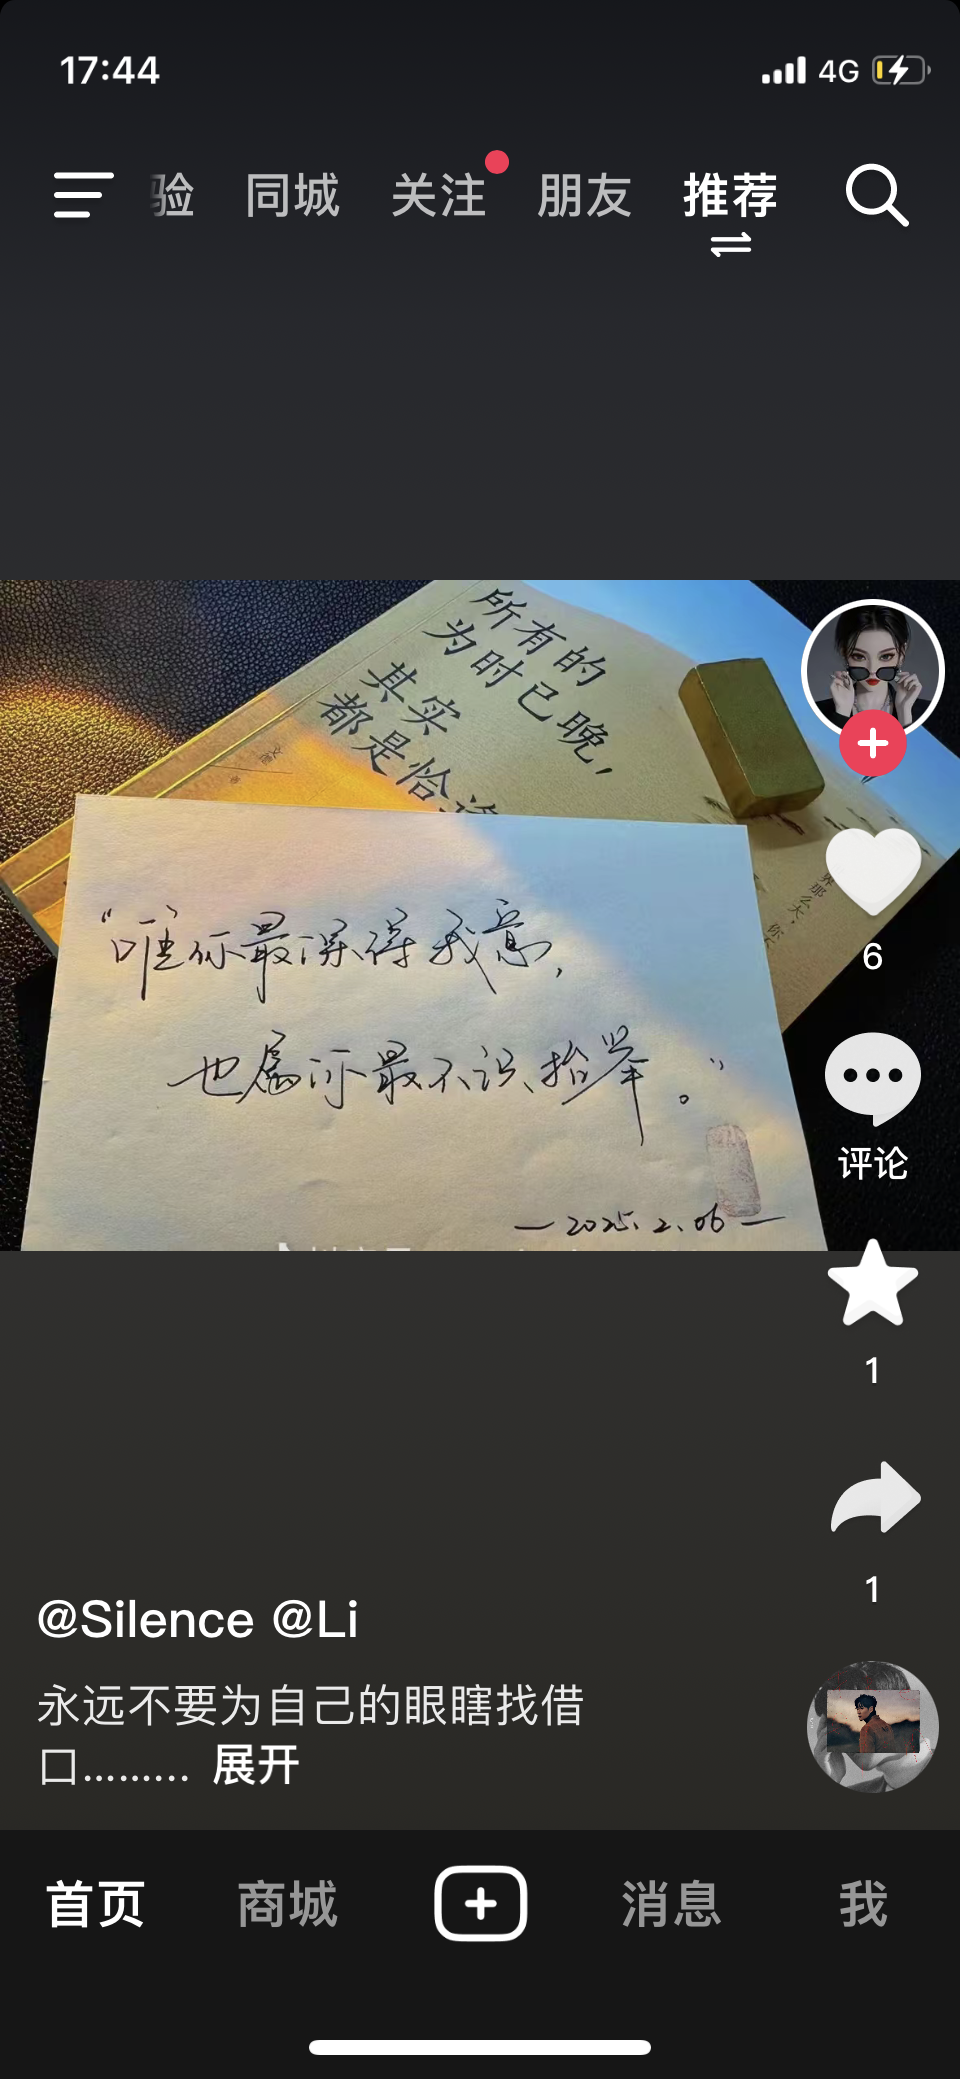 17:44
4G
验 同城 关注 朋友 推荐
所有的
为时已晚，
其实
都是恰逢
界那么大，你
“唯你最深得我意，
也属你最不识抬举。”
—2025.2.06—
6
评论
1
1
@Silence @Li
永远不要为自己的眼瞎找借
口......... 展开
首页 商城 消息 我